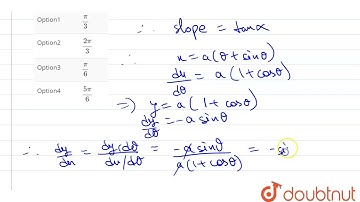 Option1 π/3
Option2 2π/3
Option3 π/6
Option4 5π/6
∴ slope = tanα
x = a(θ+sinθ)
dx/dθ = a(1+cosθ)
⇒ y = a(1+cosθ)
dy/dθ = -a sinθ
∴ dy/dx = dy/dθ / dx/dθ = -a sinθ / a(1+cosθ) = -si
doubtnut